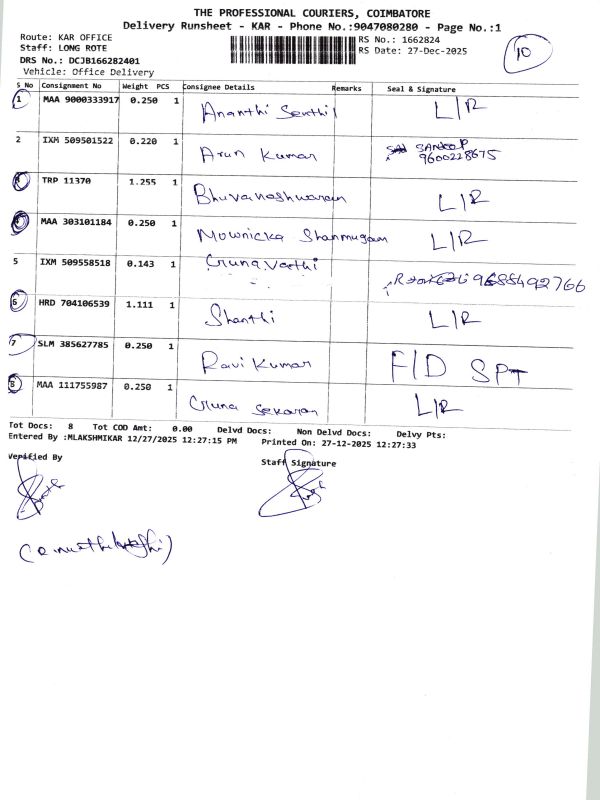 THE PROFESSIONAL COURIERS, COIMBATORE
Delivery Runsheet - KAR - Phone No.:9047080280 - Page No.:1
Route: KAR OFFICE
RS No.: 1662824
Staff: LONG ROTE
RS Date: 27-Dec-2025
10
DRS No.: DCJB166282401
Vehicle: Office Delivery
S No Consignment No Weight PCS Consignee Details Remarks Seal & Signature
1 MAA 9000333917 0.250 1 Ananthi Senthil L/R
2 IXM 509501522 0.220 1 Arun Kumar SANEEP
9600228675
3 TRP 11370 1.255 1 Bhuvaneshwaran L/R
4 MAA 303101184 0.250 1 Mownicka Shanmugam L/R
5 IXM 509558518 0.143 1 9688492766
6 HRD 704106539 1.111 1 Shanthi L/R
7 SLM 385627785 0.250 1 Ravi Kumar F/D SPT
8 MAA 111755987 0.250 1 Guna Sekaran L/R
Tot Docs: 8 Tot COD Amt: 0.00 Delvd Docs: Non Delvd Docs: Delvy Pts:
Entered By :MLAKSHMIKAR 12/27/2025 12:27:15 PM Printed On: 27-12-2025 12:27:33
Verified By Staff Signature